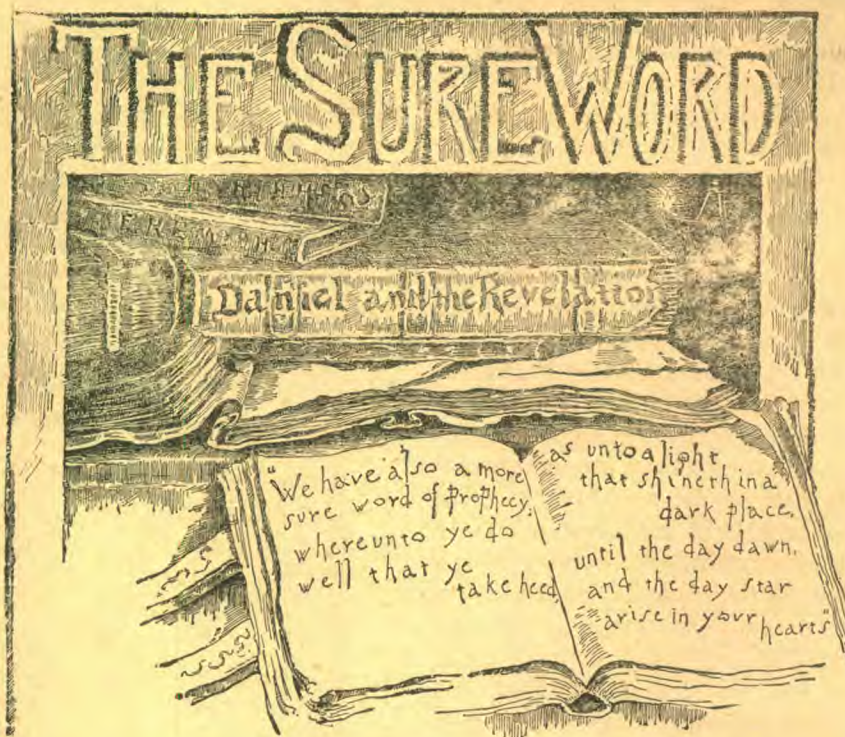 THE SURE WORD
JEREMIAH
Daniel and the Revelation
"We have also a more
sure word of Prophecy;
whereunto ye do
well that ye
take heed,
as unto a light
that shineth in a
dark place,
until the day dawn,
and the day star
arise in your hearts"